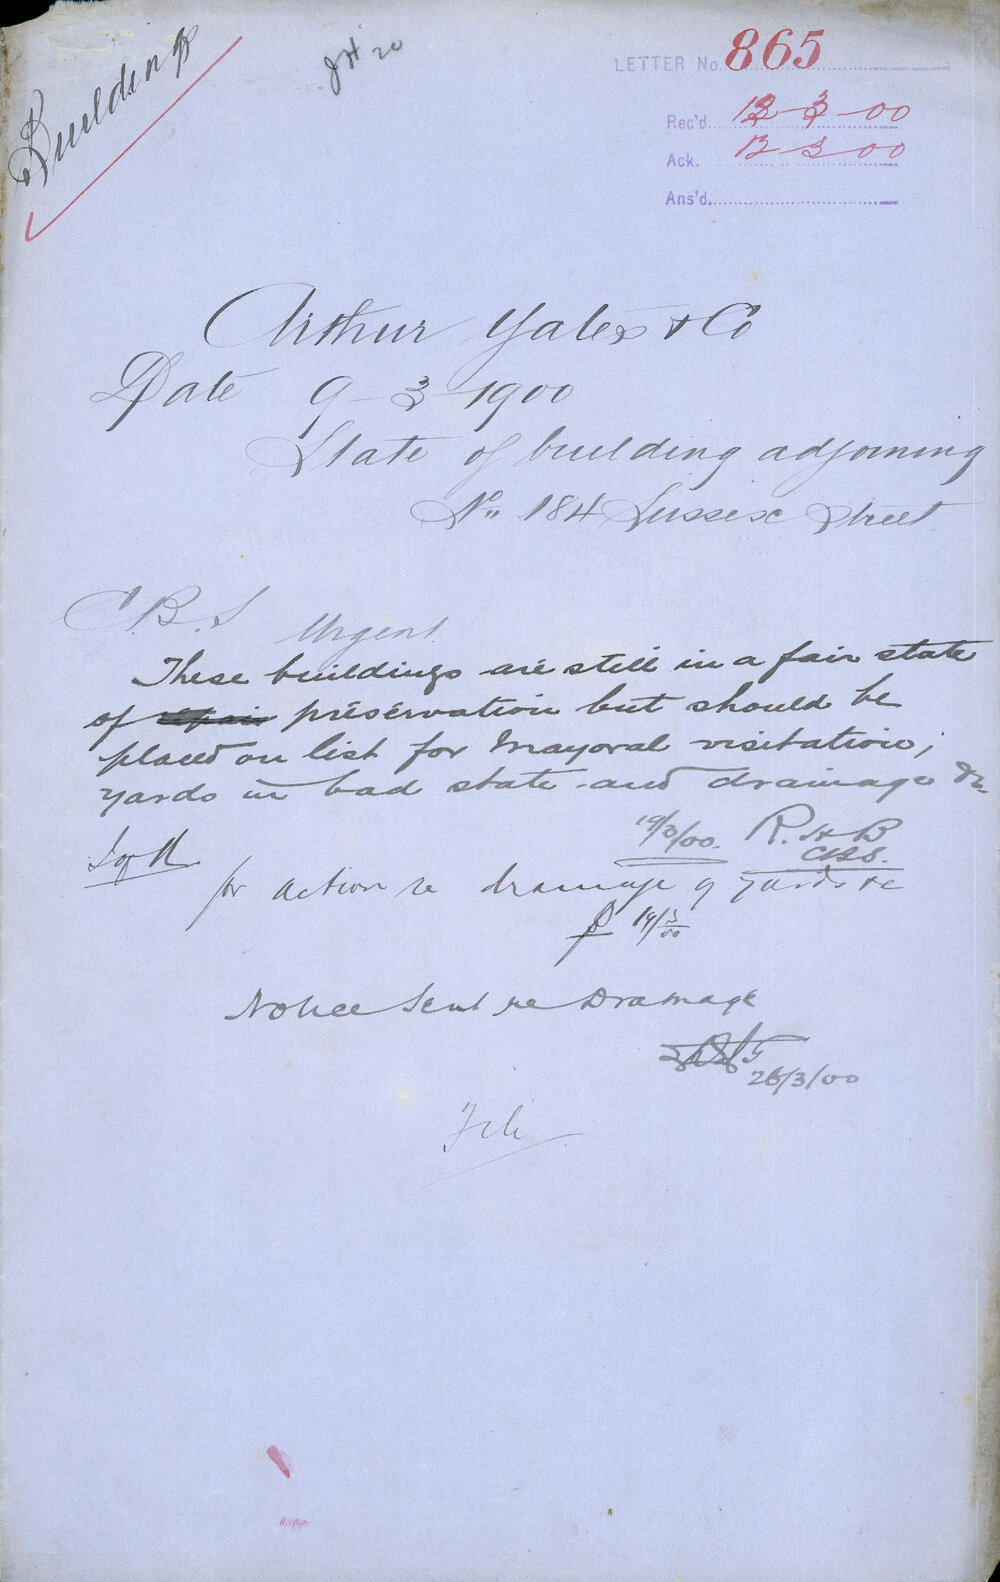 Buildings
JH 20
LETTER No. 865
Rec'd. 12-3-00
Ack. 13-3-00
Ans'd.
Arthur Yates & Co
Date 9-3-1900
State of building adjoining
No. 184 Sussex Street
C.B.S Urgent
These buildings are still in a fair state
of repair preservation but should be
placed on list for Mayoral visitation;
yards in bad state and drainage &c.
19/3/00. R.H.B
CBS.
for action re drainage of yards &c
19/3/00
Notice Sent re Drainage
26/3/00
File